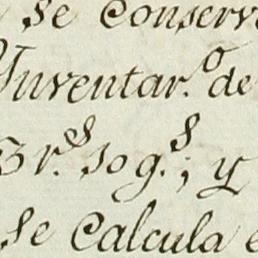 se conserv
Ynventar.º de
Br.ˢ 10 g.ˢ; y
se calcula e